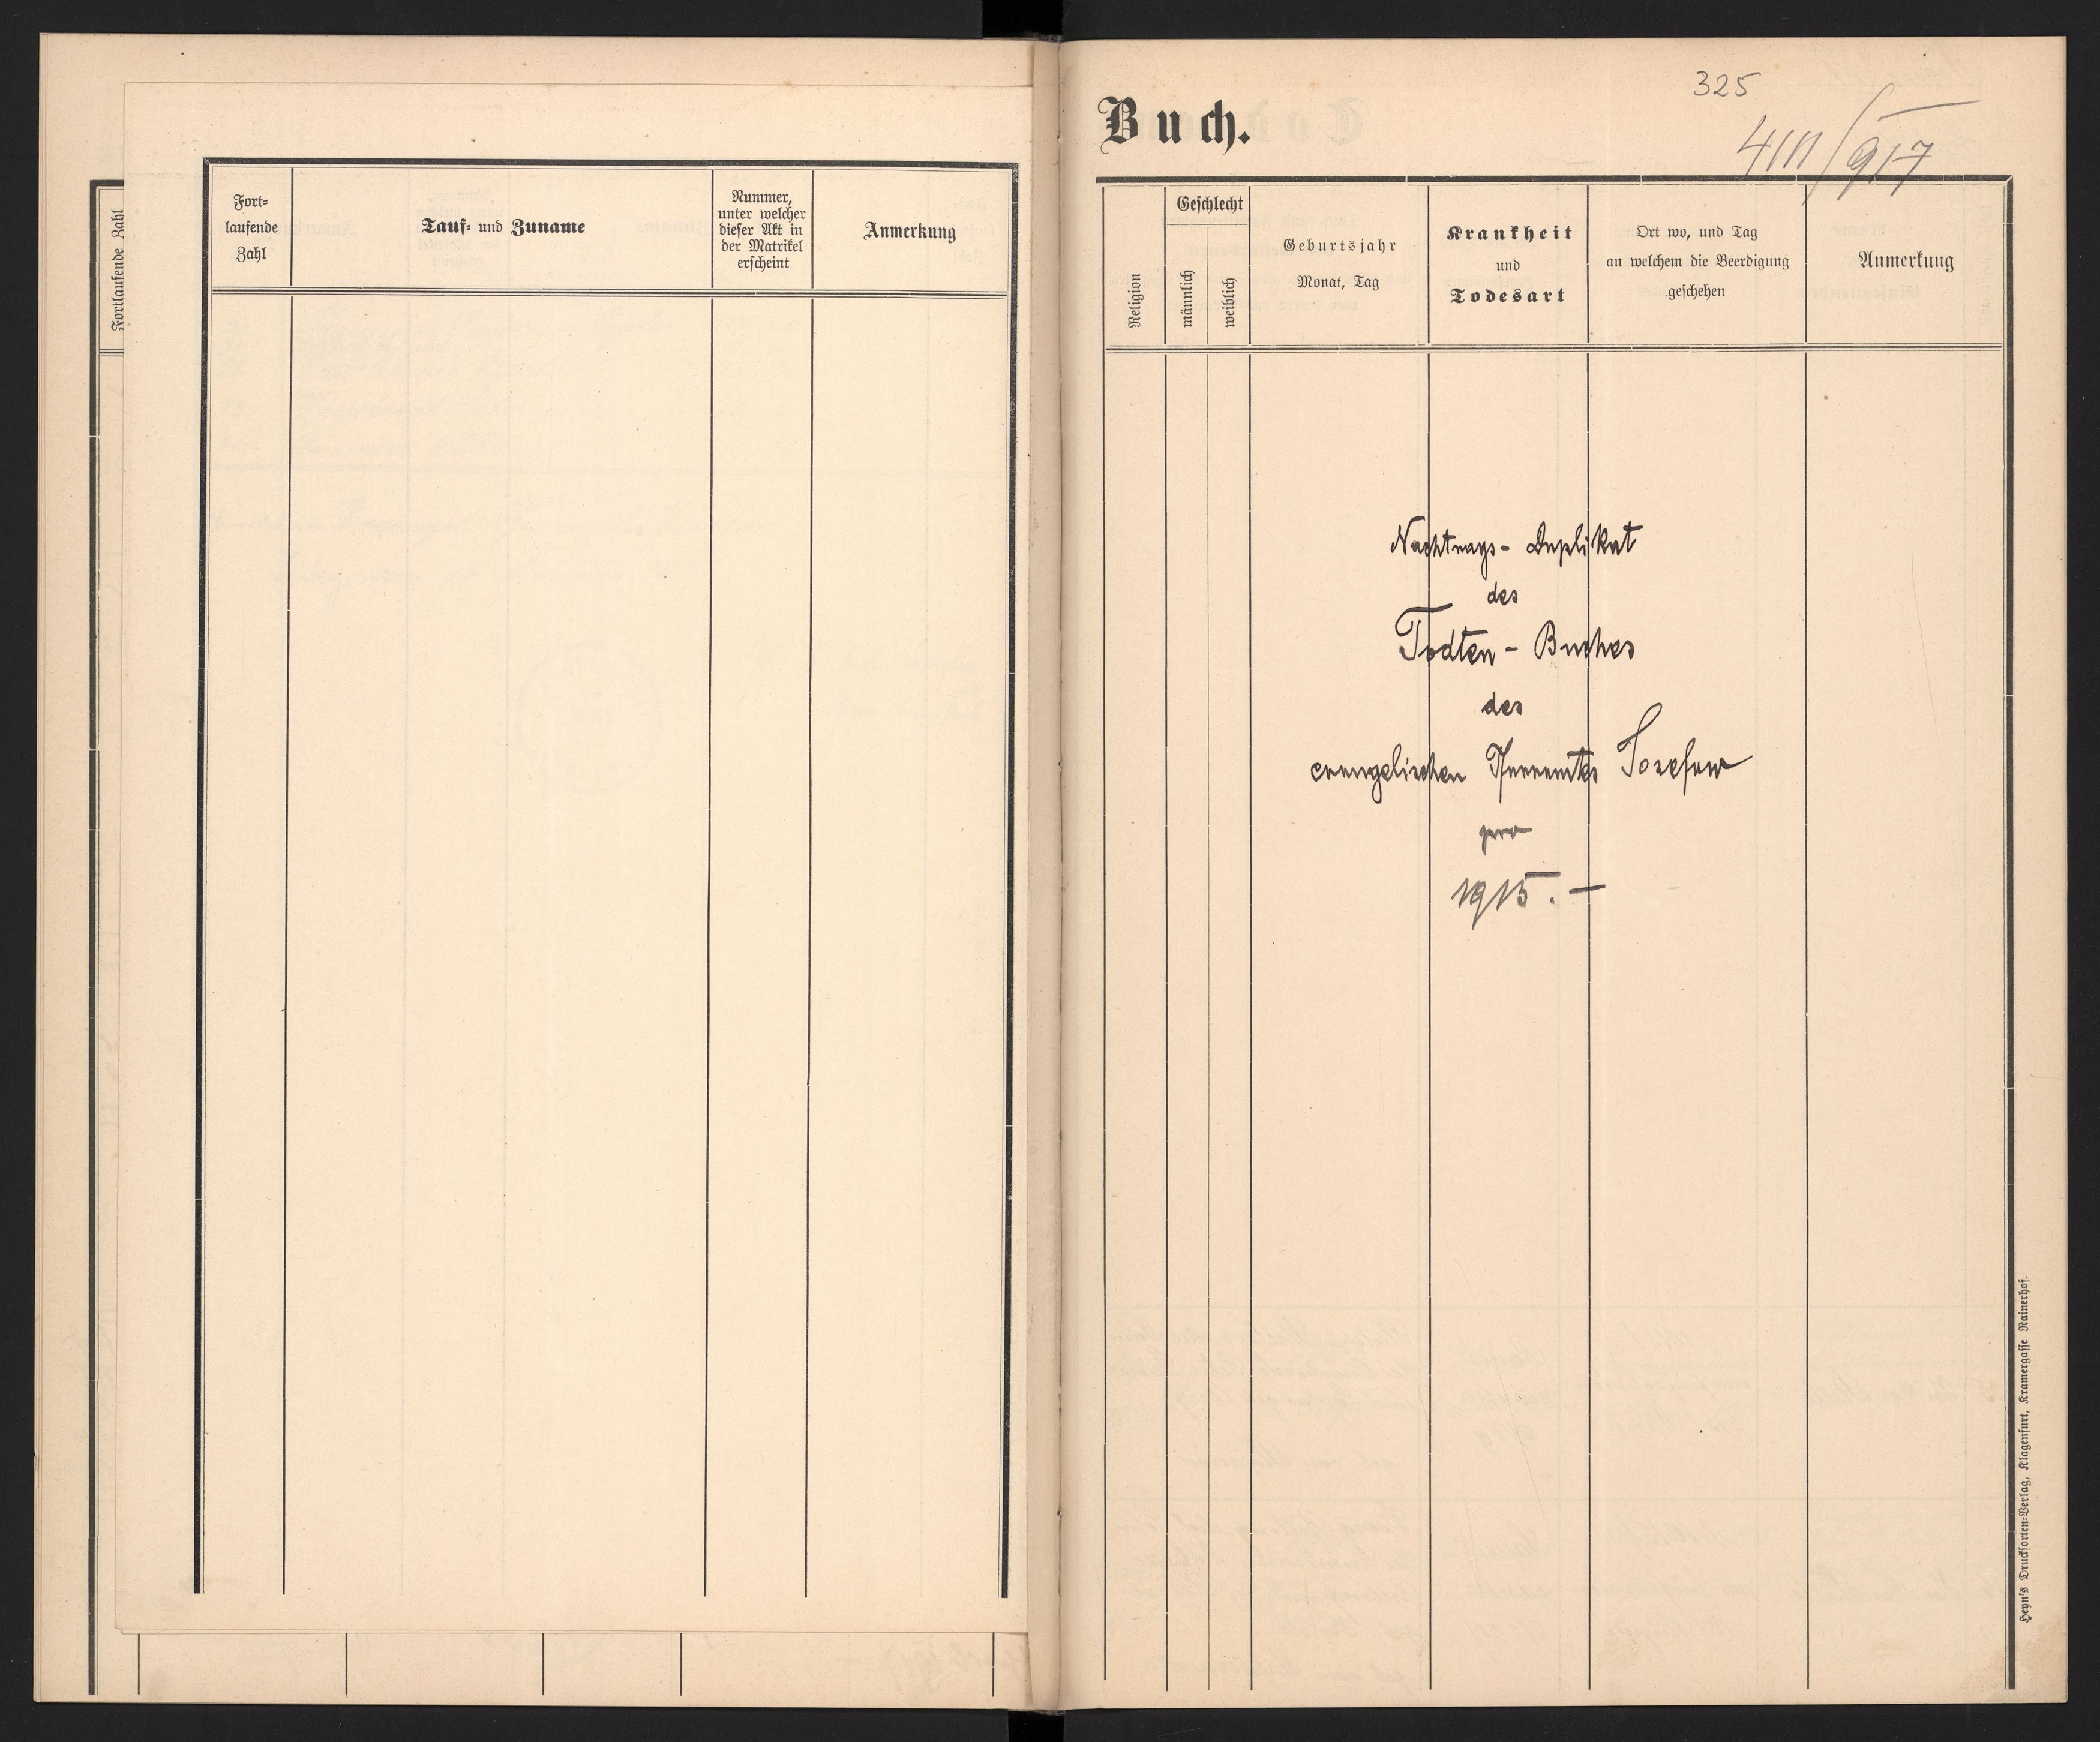 Fortlaufende Zahl
Fort-
laufende
Zahl
Tauf- und Zuname
Nummer,
unter welcher
dieser Akt in
der Matrikel
erscheint
Anmerkung
325
Buch.
/917
Religion
Geschlecht
männlich
weiblich
Geburtsjahr
Monat, Tag
Krankheit
und
Todesart
Ort wo, und Tag
an welchem die Beerdigung
geschehen
Anmerkung
Nachtrags- Duplikat
des
Todten- Buches
des
evangelischen Pfarramtes Josefow
pro
1915. —
Heyn's Drucksorten-Verlag, Klagenfurt, Kramergasse Rainerhof.